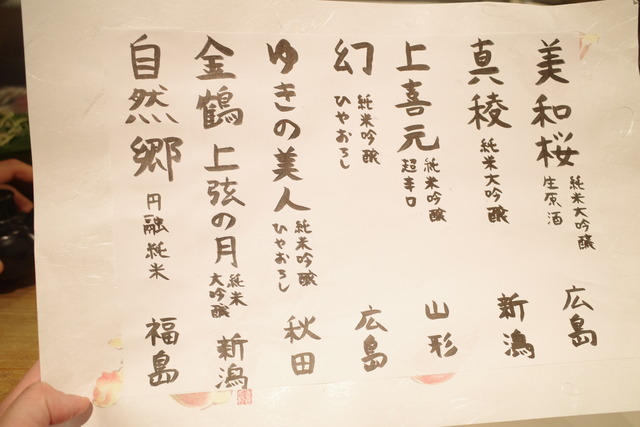 美和桜 純米大吟醸 生原酒 広島
真稜 純米大吟醸 新潟
上喜元 純米吟醸 超辛口 山形
幻 純米吟醸 ひやおろし 広島
ゆきの美人 純米吟醸 ひやおろし 秋田
金鶴 上弦の月 純米大吟醸 新潟
自然郷 円融純米 福島